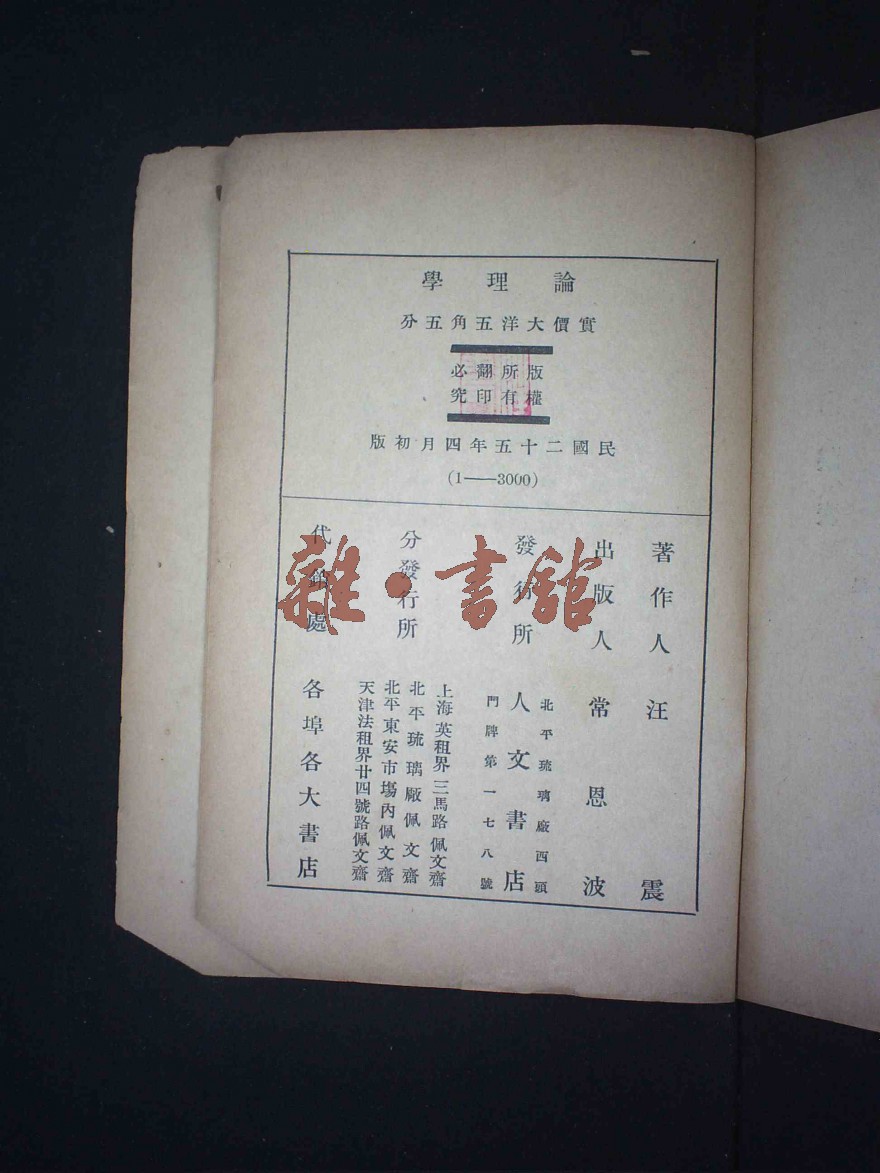 論理學
實價大洋五角五分
版權
所有
翻印
必究
民國二十五年四月初版
(1——3000)
著作人 汪震
出版人 常恩波
發行所 人文書店
北平琉璃廠西頭
門牌第一七八號
分發行所
上海英租界三馬路佩文齋
北平琉璃廠佩文齋
北平東安市場內佩文齋
天津法租界廿四號路佩文齋
代銷處 各埠各大書店
雜·書館